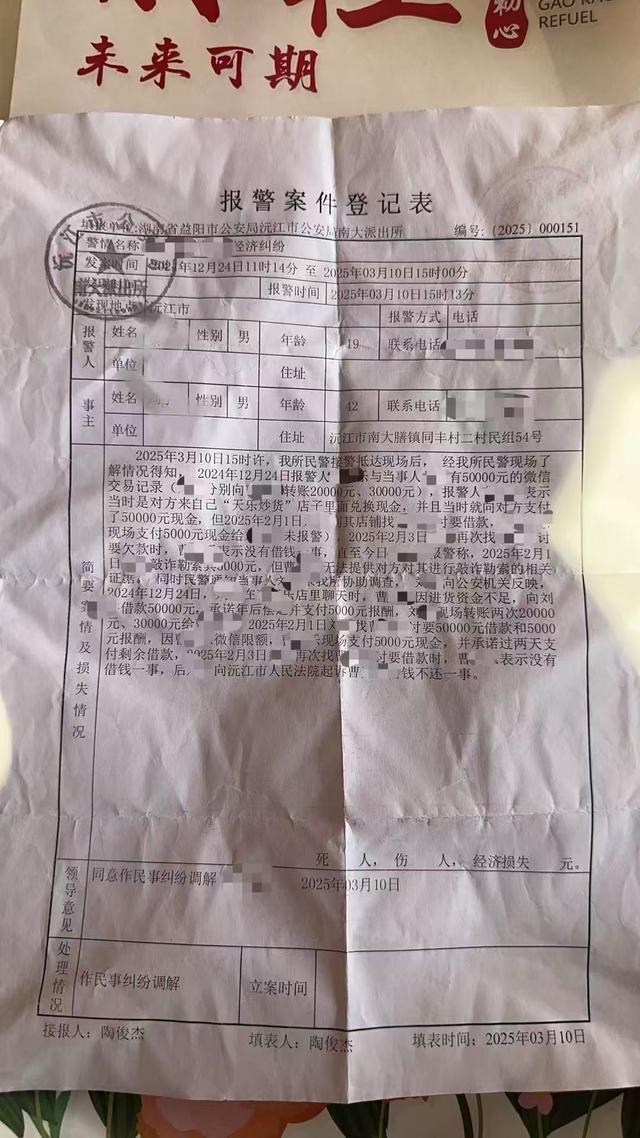 初心
GAO
REFUEL
未来可期
报警案件登记表
填表单位:湖南省益阳市公安局沅江市公安局南大派出所 编号:(2025)000151
警情名称 经济纠纷
发案时间 2024年12月24日11时14分 至 2025年03月10日15时00分
报警时间 2025年03月10日15时13分
发现地点 沅江市 报警方式 电话
报警人 姓名 性别 男 年龄 19 联系电话
单位 住址
事主 姓名 性别 男 年龄 42 联系电话
单位 住址 沅江市南大膳镇同丰村二村民组54号
简要案情及损失情况
2025年3月10日15时许，我所民警接警抵达现场后，经我所民警现场了
解情况得知，2024年12月24日报警人 乐与当事人 有50000元的微信
交易记录（ 分别向 转账20000元、30000元），报警人 表示
当时是对方来自己“天乐炒货”店子里面兑换现金，并且当时就向对方支付
了50000元现金，但2025年2月1日 到其店铺找 讨要借款，
现场支付5000元现金给 未报警）2025年2月3日 再次找 讨
要欠款时，曹 表示没有借钱一事，直至今日 报警称，2025年2月1
日 敲诈勒索其5000元，但曹 无法提供对方对其进行敲诈勒索的相关
证据。同时民警通知当事人刘 来我所协助调查， 向公安机关反映，
2024年12月24日， 至 乐店里聊天时，曹 因进货资金不足，向刘
借款50000元，承诺年后偿还并支付5000元报酬，刘 现场转账两次20000
元、30000元给 2025年2月1日刘 找曹 讨要50000元借款和5000
元报酬，因曹 微信限额， 乐现场支付5000元现金，并承诺过两天支
付剩余借款，2025年2月3日 再次找 讨要借款时，曹 表示没有
借钱一事，后 向沅江市人民法院起诉曹 钱不还一事。
死 人，伤 人，经济损失 元。
领导意见 同意作民事纠纷调解 2025年03月10日
处理情况 作民事纠纷调解 立案时间
接报人：陶俊杰 填表人：陶俊杰 填表时间：2025年03月10日